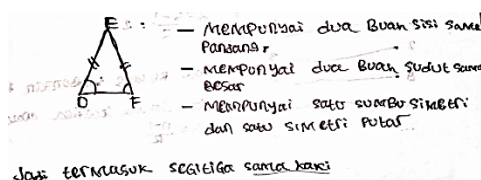 E
D
F
- MEMPUNYAI dua Buah sisi sama
Panjang,
- MEMPUNYAI dua Buah sudut sama
Besar
- MEMPUNYAI satu sumbu simetri
dan satu simetri Putar
Jadi termasuk segitiga sama kaki